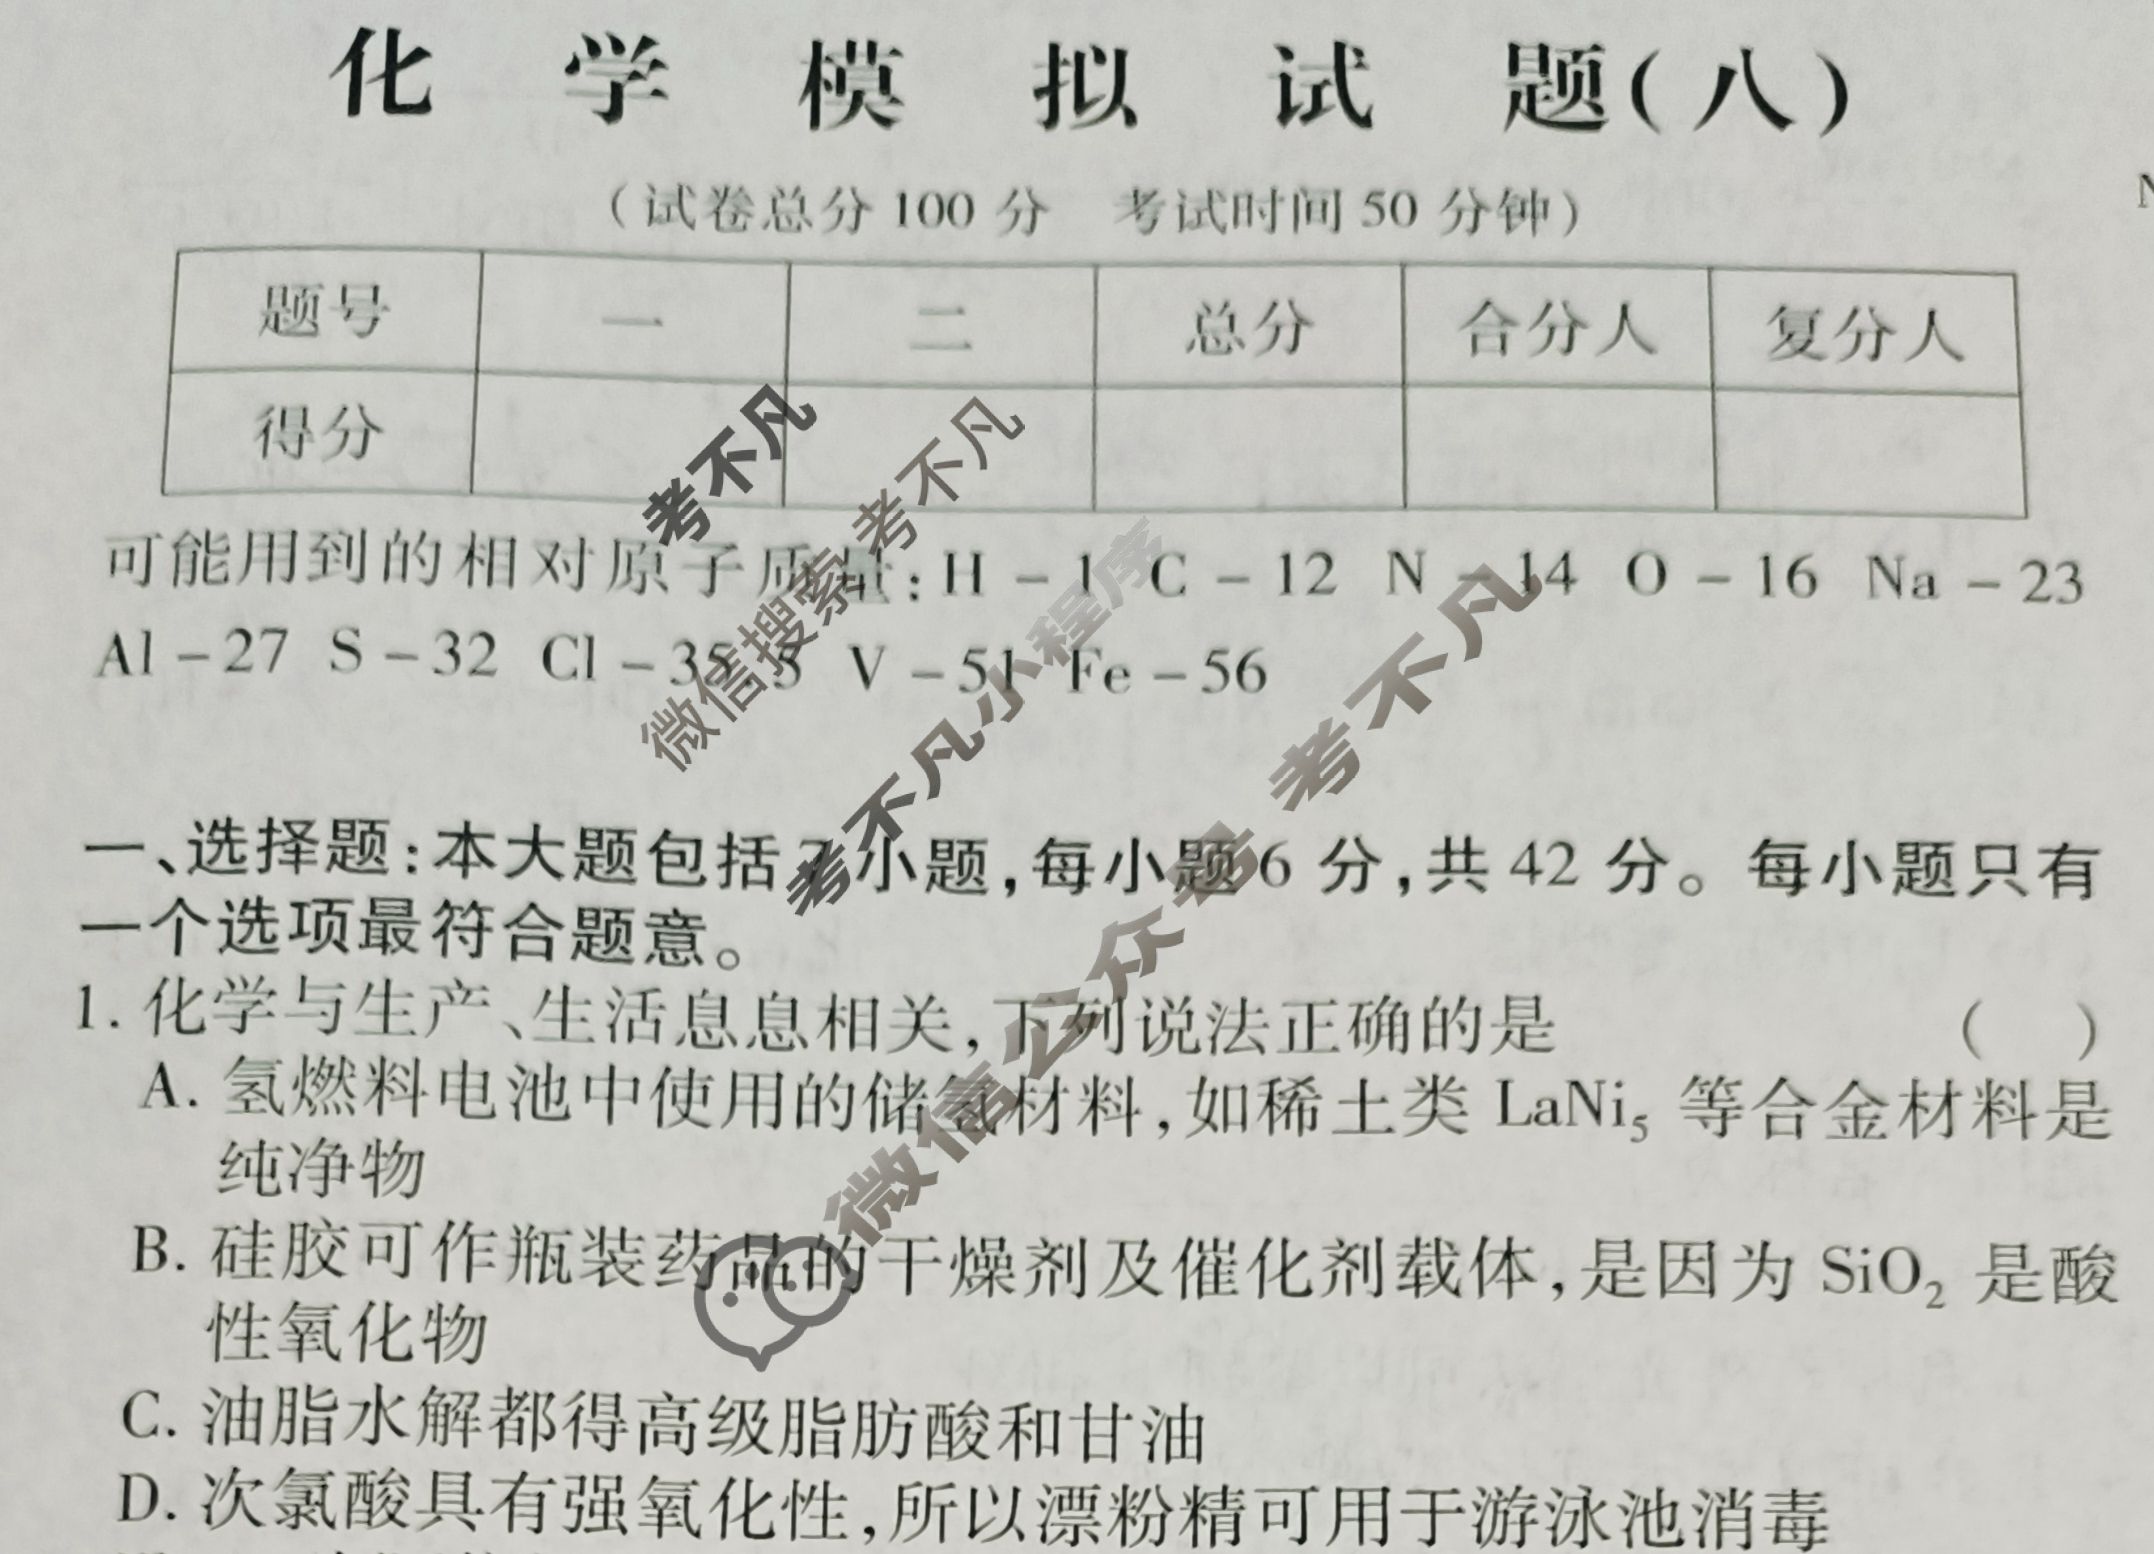 化学模拟试题(八)
(试卷总分100分 考试时间50分钟)
题号 一 二 总分 合分人 复分人
得分
可能用到的相对原子质量:H-1 C-12 N-14 O-16 Na-23
Al-27 S-32 Cl-35.5 V-51 Fe-56
一、选择题:本大题包括7小题,每小题6分,共42分。每小题只有
一个选项最符合题意。
1. 化学与生产、生活息息相关,下列说法正确的是 ( )
A. 氢燃料电池中使用的储氢材料,如稀土类LaNi₅等合金材料是
纯净物
B. 硅胶可作瓶装药品的干燥剂及催化剂载体,是因为SiO₂是酸
性氧化物
C. 油脂水解都得高级脂肪酸和甘油
D. 次氯酸具有强氧化性,所以漂粉精可用于游泳池消毒
考不凡
微信搜索 考不凡
考不凡小程序
微信公众号 考不凡